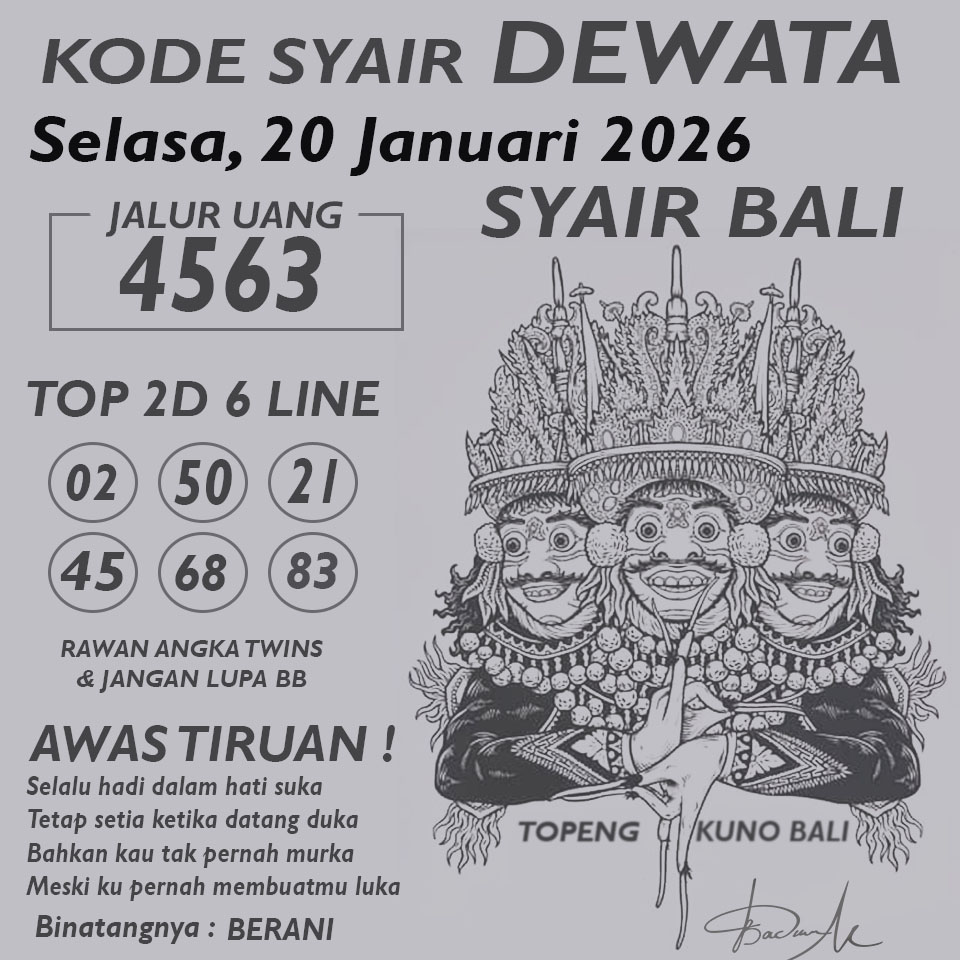 KODE SYAIR DEWATA
Selasa, 20 Januari 2026
SYAIR BALI
JALUR UANG
4563
TOP 2D 6 LINE
02 50 21
45 68 83
RAWAN ANGKA TWINS
& JANGAN LUPA BB
AWAS TIRUAN !
Selalu hadi dalam hati suka
Tetap setia ketika datang duka
Bahkan kau tak pernah murka
Meski ku pernah membuatmu luka
Binatangnya : BERANI
TOPENG KUNO BALI